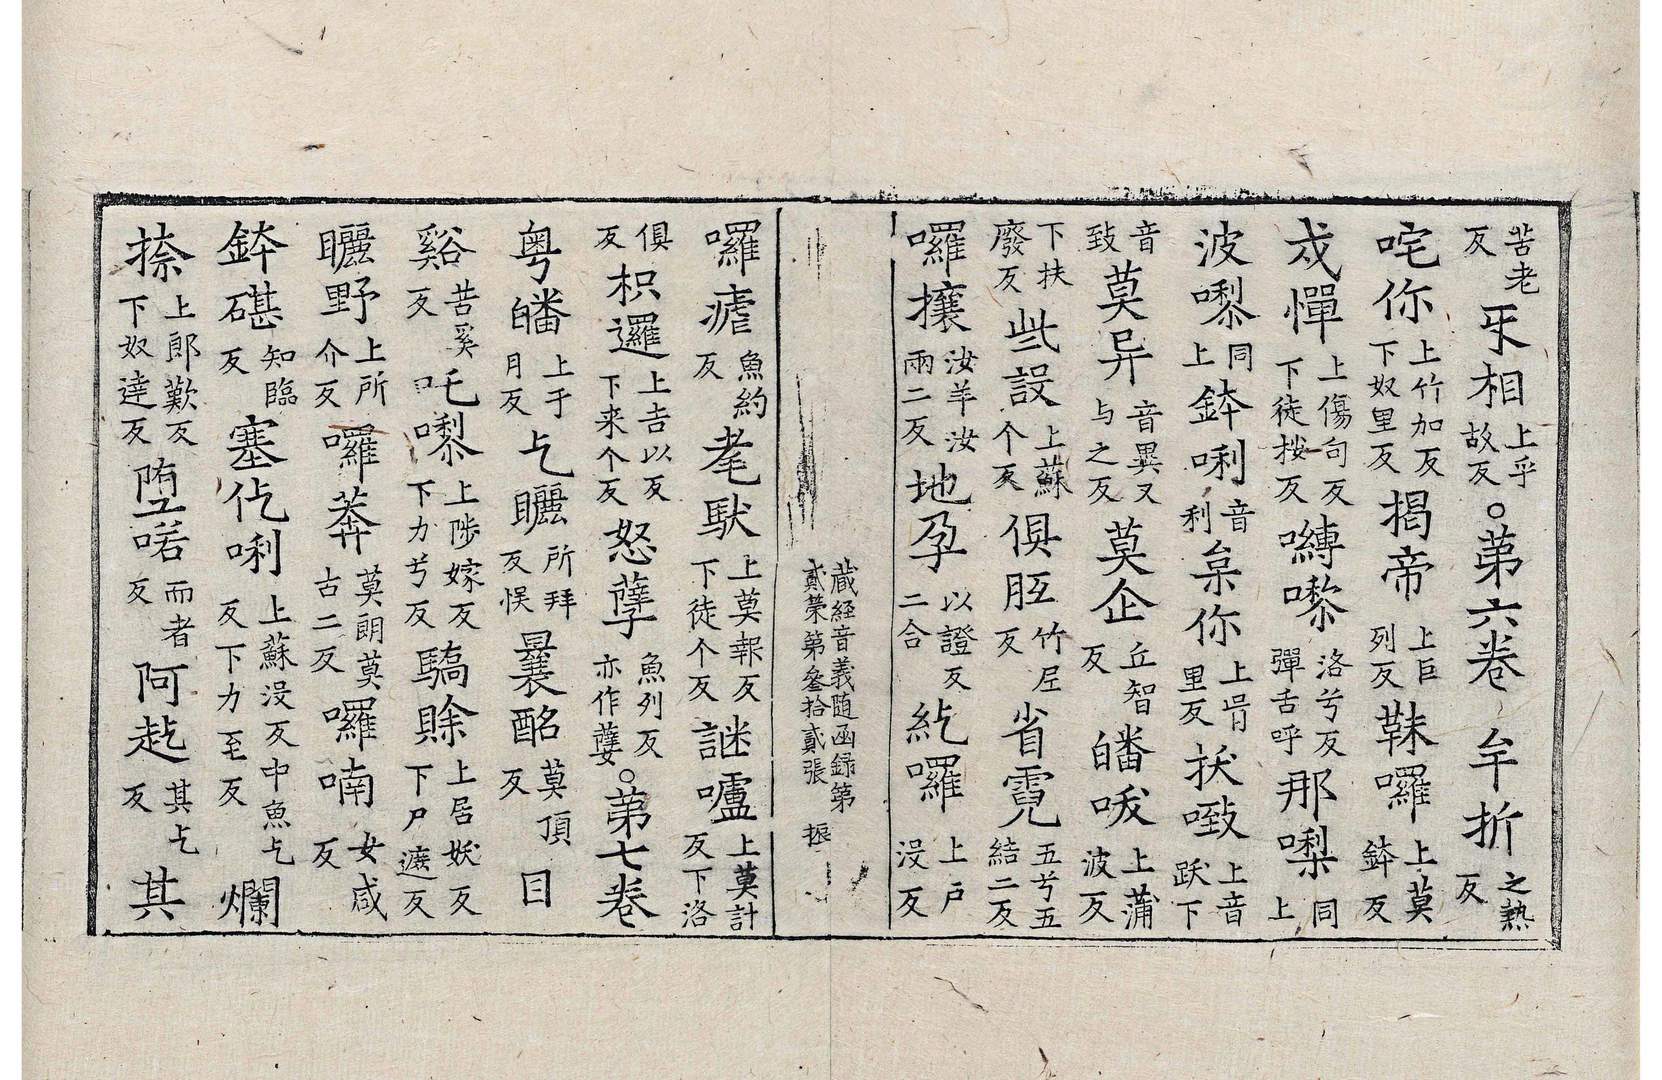 苦老反 𤓰相上乎故反。第六卷 牟折之熱反
咤你上竹加反下奴里反 揭帝上巨列反 靺囉上莫鉢反
戍憚上傷句反下徒桉反 囀㗚洛兮反彈舌呼 那㗚同上
波㗚同上 鉢唎音利 枲你上胥里反 㧞致上音跃下
音致 莫异音異又与之反 莫企丘智反 皤㕹上蒲波反
下扶廢反 些設上蘇个反 俱胝竹𡰱反 省霓五兮五結二反
囉攘汝羊汝兩二反 地孕以證反二合 紇囉上戶没反
藏経音義随函録第貳榮第叄拾貳張 振
囉瘧魚約反 耄馱上莫報反下徒个反 謎嚧上莫計反下洛
俱反 枳邏上吉以反下来个反 怒孽魚列反亦作㜸。第七卷
粤皤上于月反 乞曬所拜反悮 曩酩莫頂反 目
谿苦奚反 吒㗚上陟嫁反下力兮反 驕賒上居妖反下尸遮反
曬野上所介反 囉莽莫朗莫古二反 囉喃女咸反
鉢碪知臨反 塞仡唎上蘇没反中魚乞反下力至反 爛
捺上郎歎反下奴達反 堕喏而者反 阿赼其乞反 其